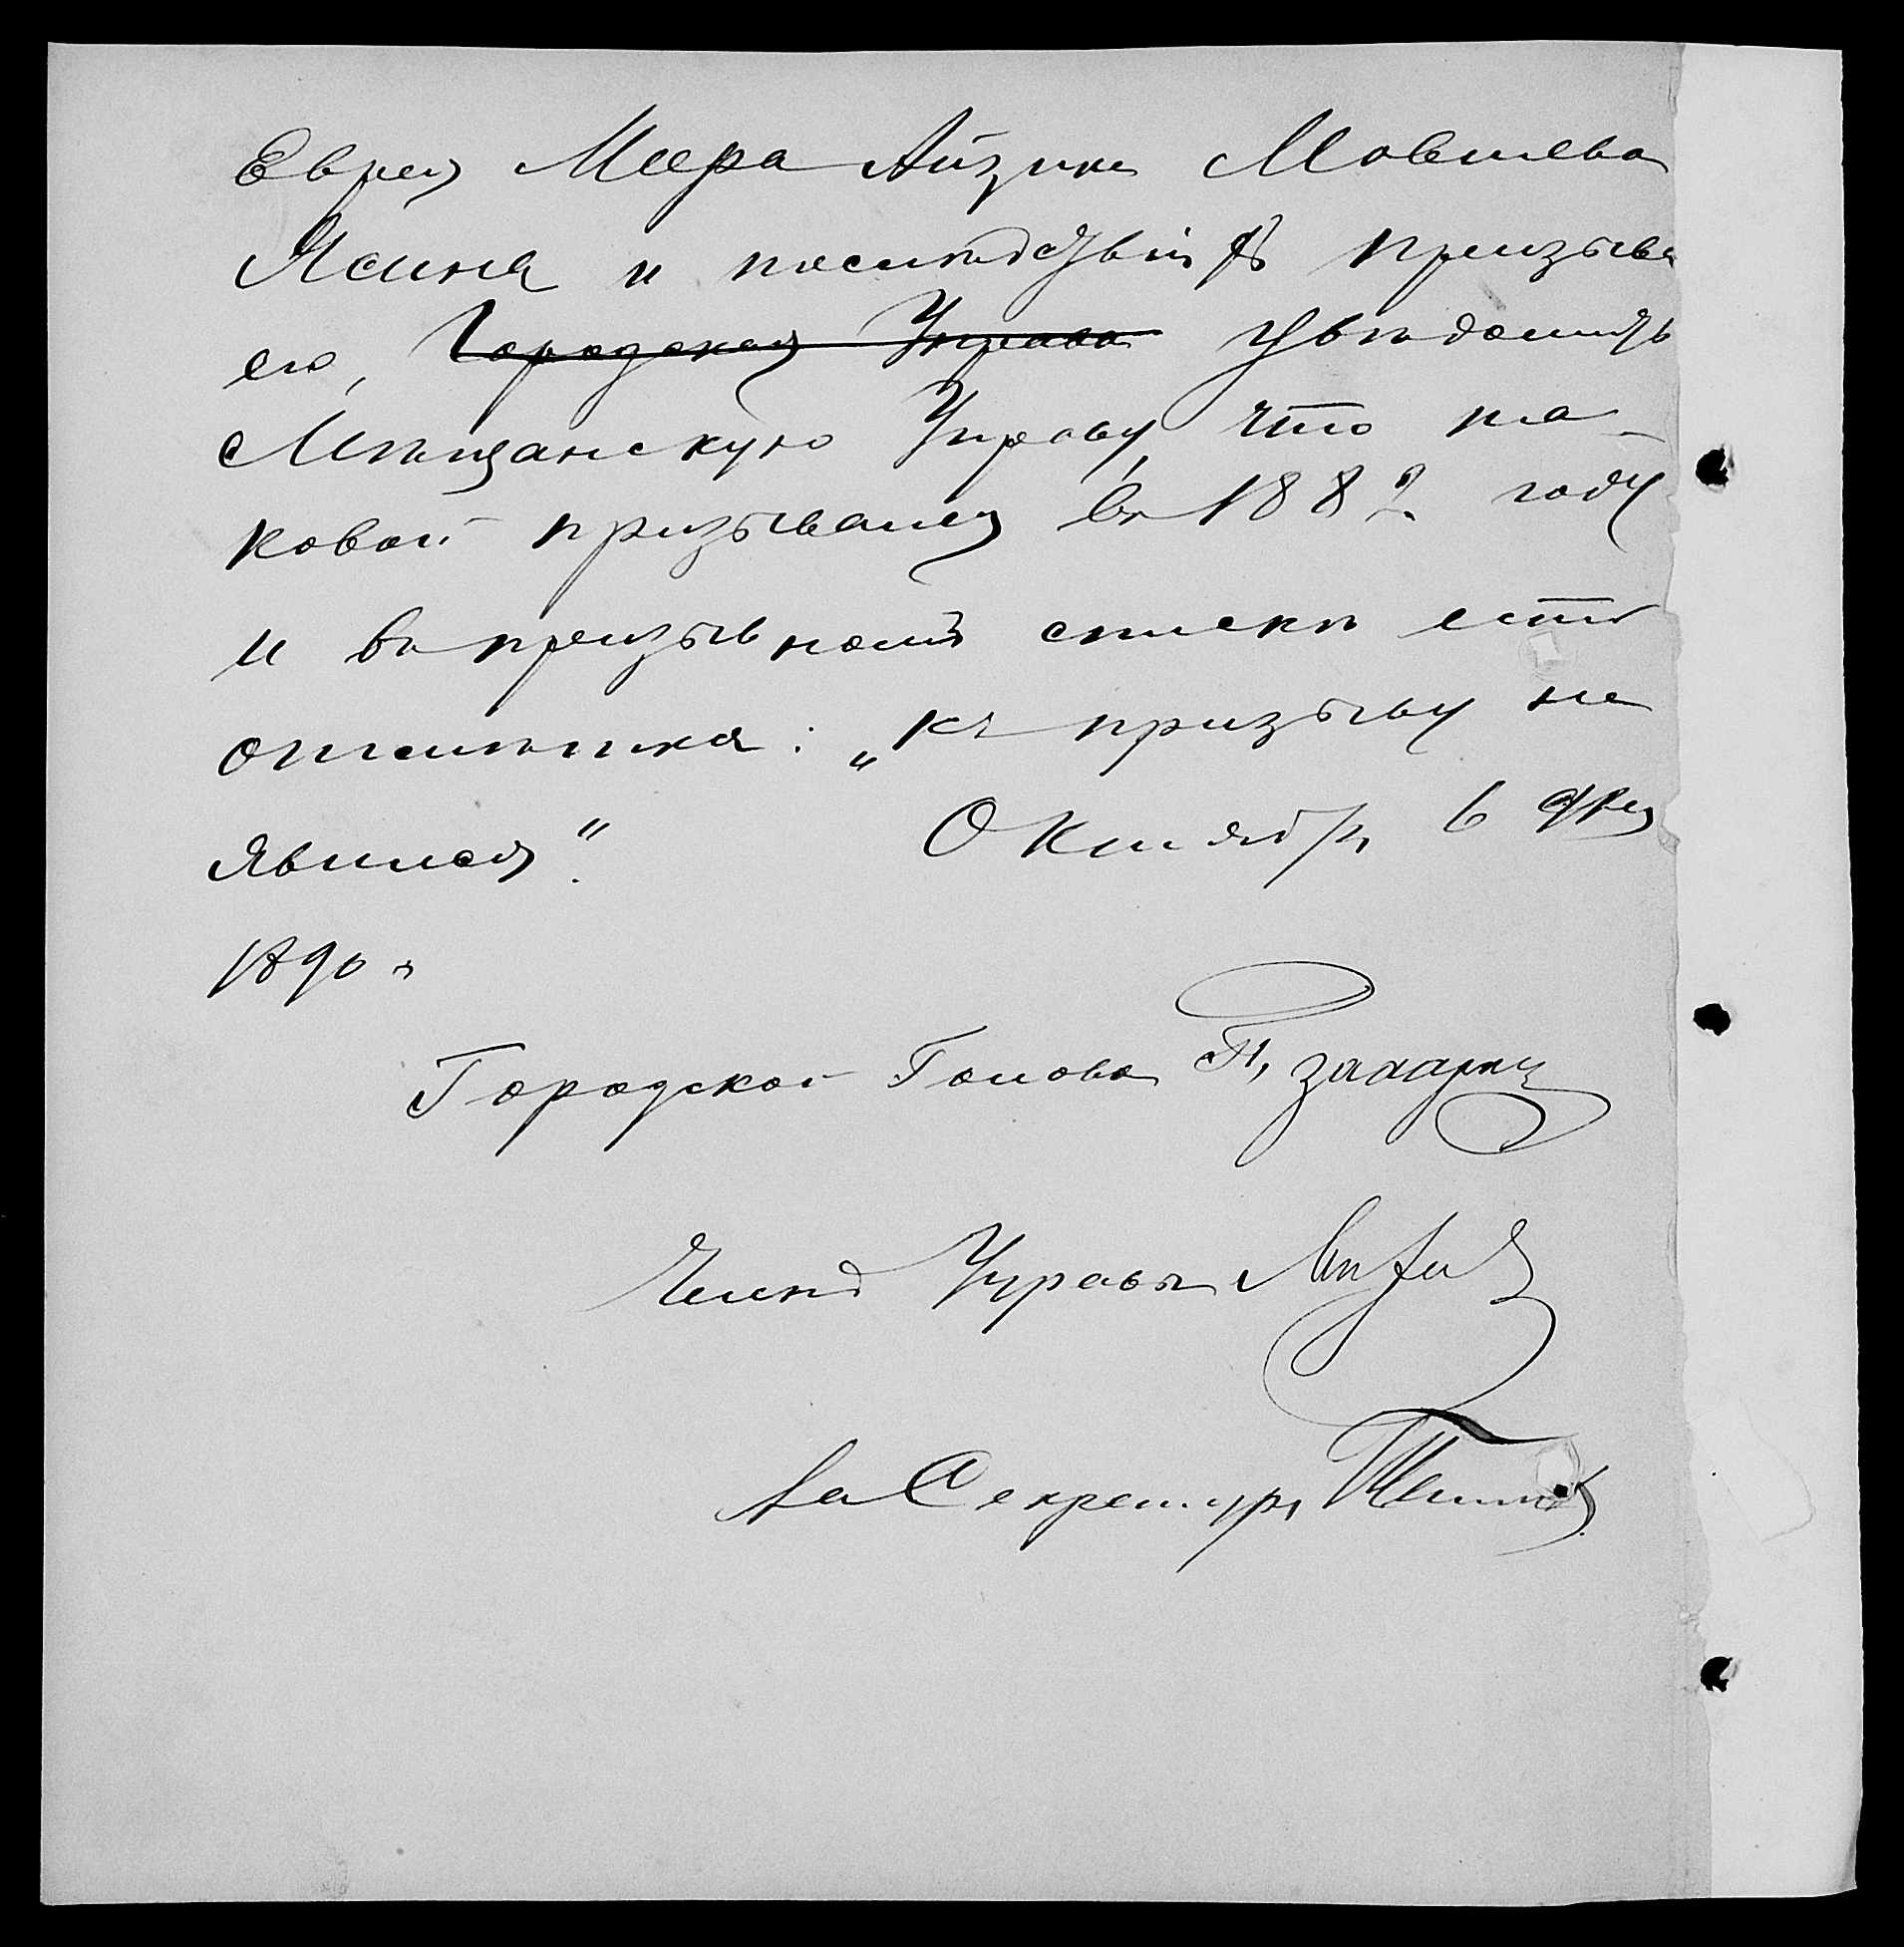 Еврея Меера Айзика Мовшева
Ясина и последствій призыва
его, Городская Управа увѣдомить
Мѣщанскую Управу, что та-
ковой призывался въ 188 году
и въ призывномъ спискѣ есть
отмѣтка: „къ призыву не
явился“. Октября 6 дня
1890 г.
Городской Голова П.
Членъ Управы
За Секретаря